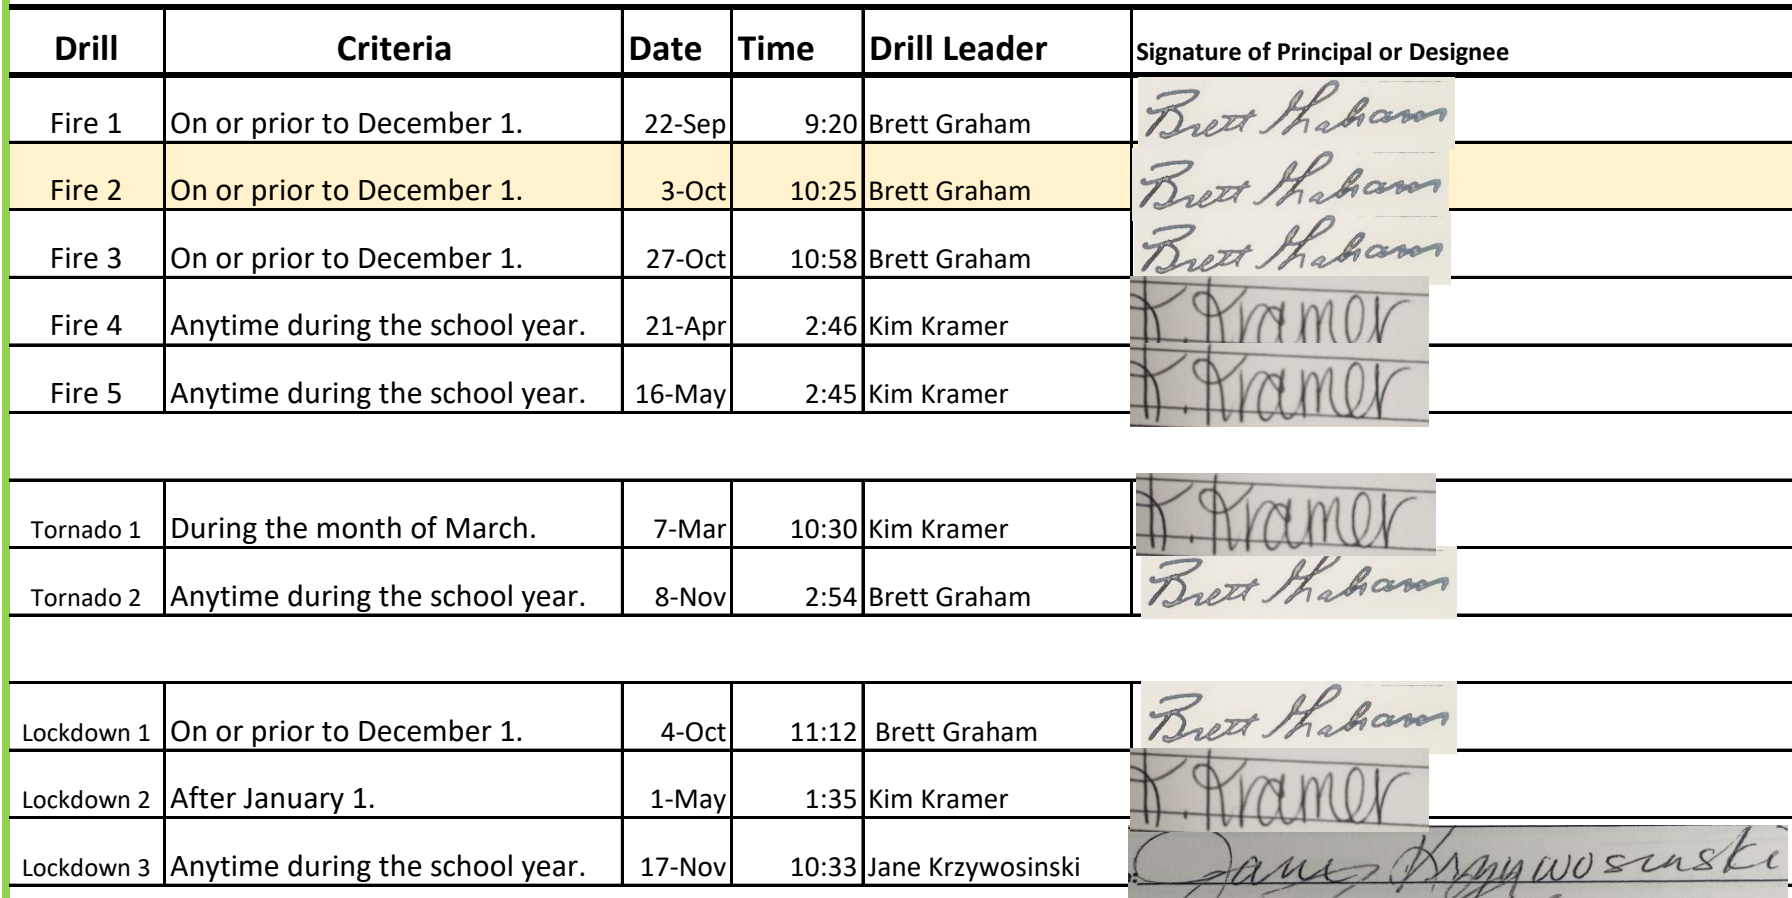 Drill Criteria Date Time Drill Leader Signature of Principal or Designee
Fire 1 On or prior to December 1. 22-Sep 9:20 Brett Graham Brett Graham
Fire 2 On or prior to December 1. 3-Oct 10:25 Brett Graham Brett Graham
Fire 3 On or prior to December 1. 27-Oct 10:58 Brett Graham Brett Graham
Fire 4 Anytime during the school year. 21-Apr 2:46 Kim Kramer K. Kramer
Fire 5 Anytime during the school year. 16-May 2:45 Kim Kramer K. Kramer
Tornado 1 During the month of March. 7-Mar 10:30 Kim Kramer K. Kramer
Tornado 2 Anytime during the school year. 8-Nov 2:54 Brett Graham Brett Graham
Lockdown 1 On or prior to December 1. 4-Oct 11:12 Brett Graham Brett Graham
Lockdown 2 After January 1. 1-May 1:35 Kim Kramer K. Kramer
Lockdown 3 Anytime during the school year. 17-Nov 10:33 Jane Krzywosinski Jane Krzywosinski